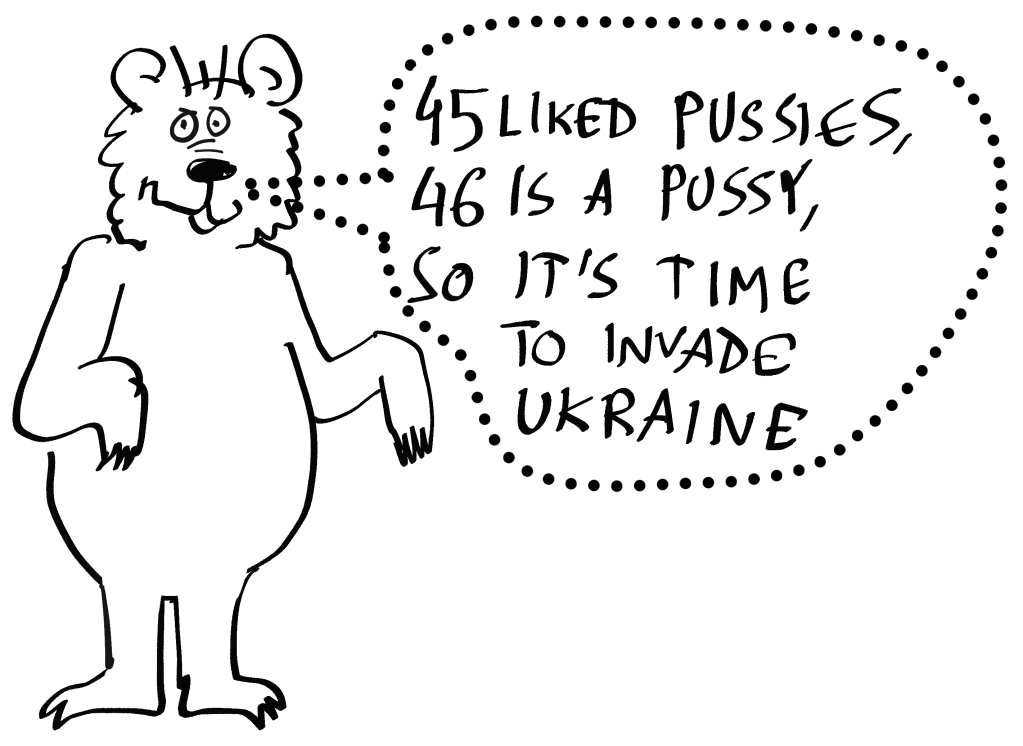 45 LIKED PUSSIES,
46 IS A PUSSY,
SO IT'S TIME
TO INVADE
UKRAINE